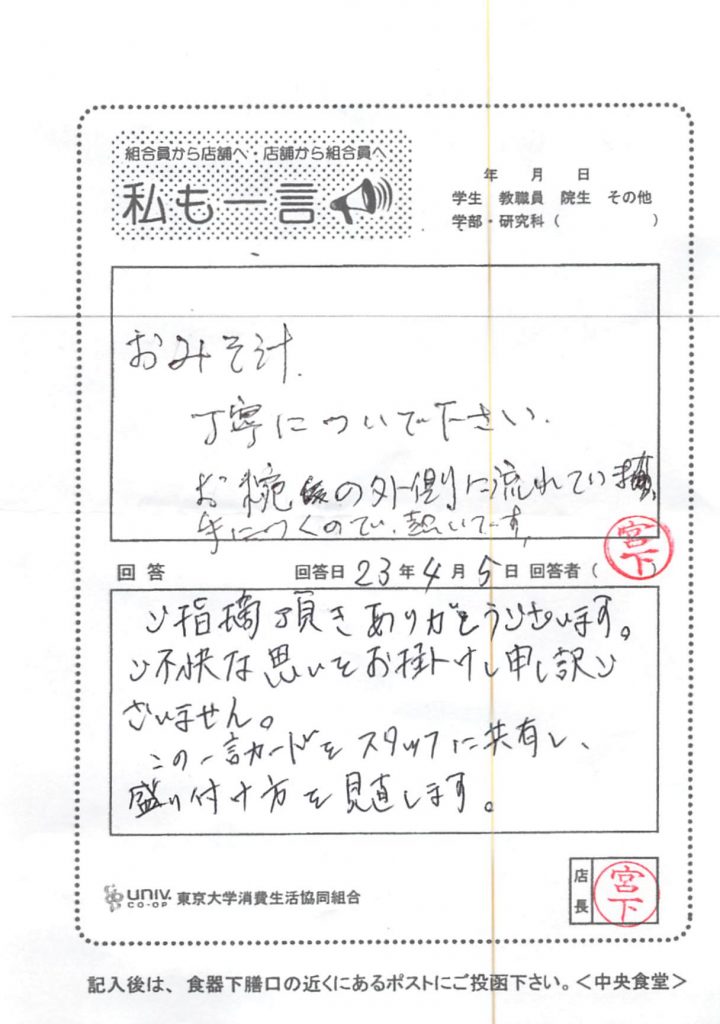 組合員から店舗へ・店舗から組合員へ
私も一言
年 月 日
学生 教職員 院生 その他
学部・研究科（ ）
おみそ汁.
丁寧について下さい.
お椀の外側に流れてい
手につくので、熱いです,
回答 回答日 23年4月5日 回答者（宮下）
ご指摘頂きありがとうございます。
ご不快な思いをお掛けし申し訳ご
ざいません。
この一言カードをスタッフに共有し、
盛り付け方を見直します。
UNIV. CO-OP 東京大学消費生活協同組合
店長 宮下
記入後は、食器下膳口の近くにあるポストにご投函下さい。＜中央食堂＞